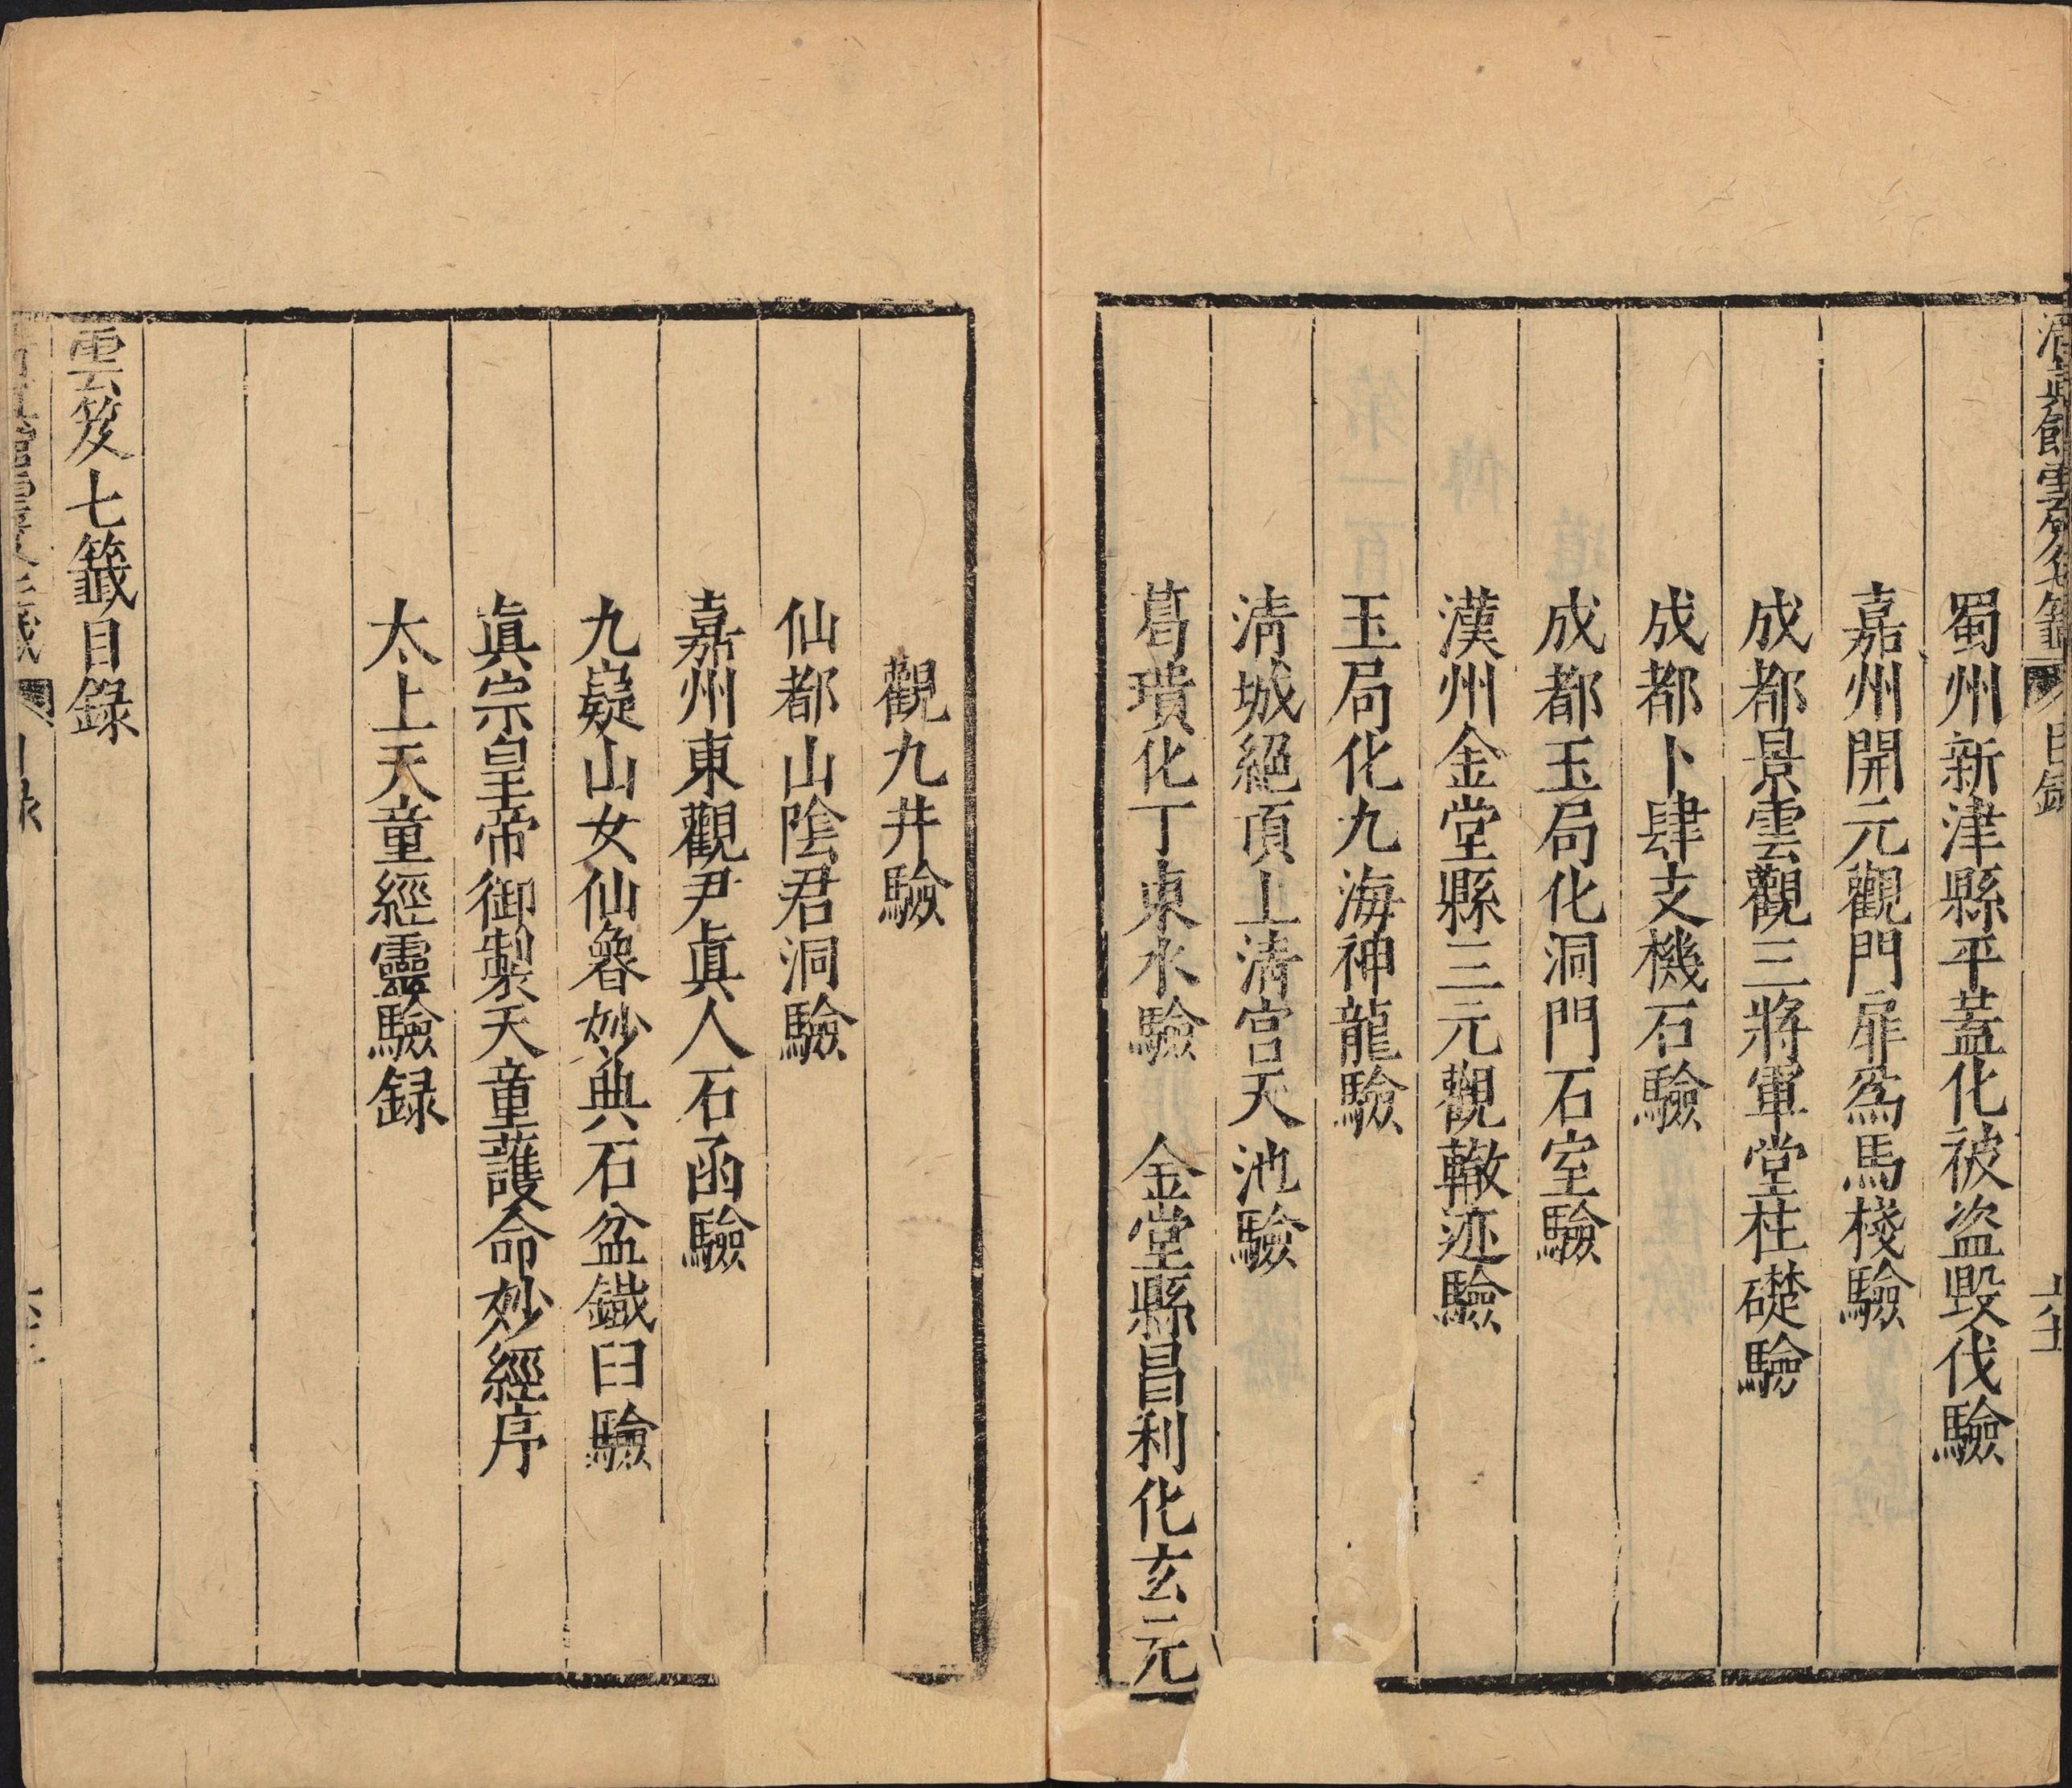 清眞館雲笈七籤 目録
蜀州新津縣平蓋化被盗毀伐驗
嘉州開元觀門扉爲馬棧驗
成都景雲觀三將軍堂柱礎驗
成都卜肆支機石驗
成都玉局化洞門石室驗
漢州金堂縣三元觀轍迹驗
玉局化九海神龍驗
淸城絕頂上淸宫天池驗
葛璝化丁東水驗 金堂縣昌利化玄元
觀九井驗
仙都山隂君洞驗
嘉州東觀尹眞人石函驗
九嶷山女仙魯妙典石盆鐵臼驗
眞宗皇帝御製天童護命妙經序
太上天童經靈驗録
雲笈七籤目錄